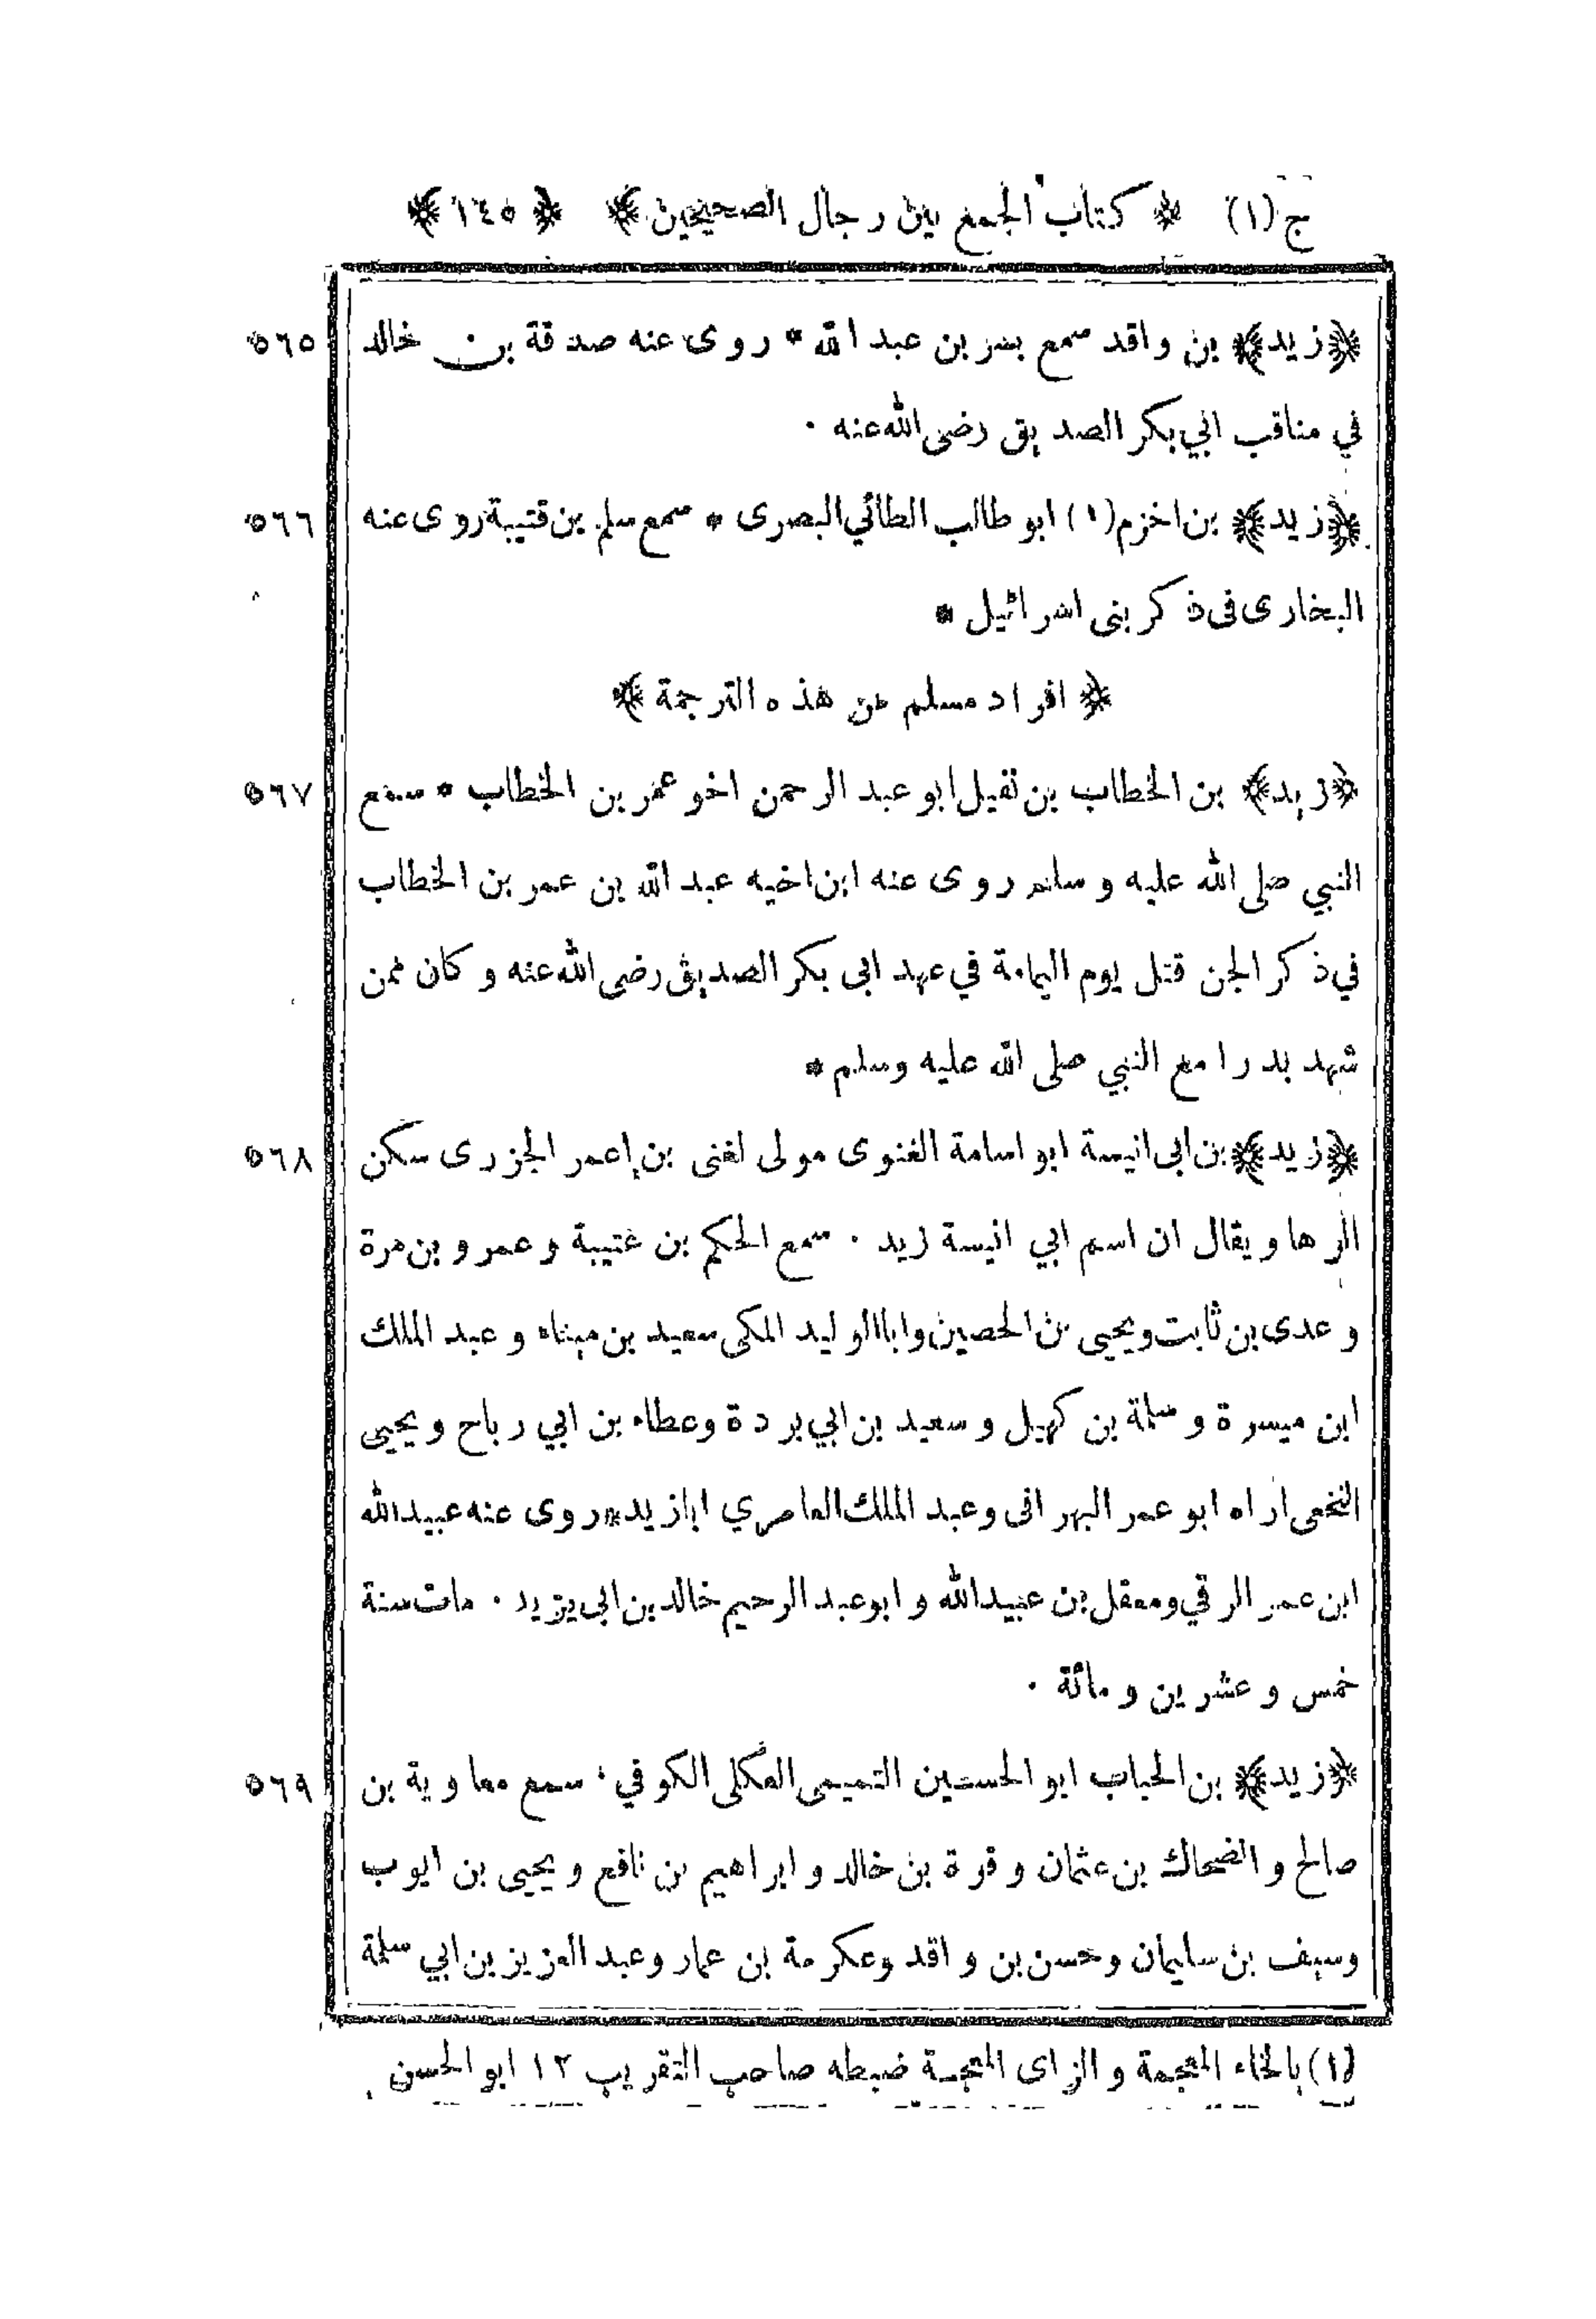 ج (١) ﴿ كتاب الجمع بين رجال الصحيحين ﴾ ﴿ ١٤٥ ﴾
﴿ زيد ﴾ بن واقد سمع بسر بن عبد الله * روى عنه صدقة بن خالد ٥٦٥
في مناقب ابي بكر الصديق رضى الله عنه ·
﴿ زيد ﴾ بن اخزم (١) ابو طالب الطائي البصرى * سمع سلم بن قتيبة روى عنه ٥٦٦
البخارى فى ذكر بنى اسرائيل *
﴿ افراد مسلم من هذه الترجمة ﴾
﴿ زيد ﴾ بن الخطاب بن نفيل ابو عبد الرحمن اخو عمر بن الخطاب * سمع ٥٦٧
النبي صلى الله عليه وسلم روى عنه ابن اخيه عبد الله بن عمر بن الخطاب
في ذكر الجن قتل يوم اليمامة في عهد ابى بكر الصديق رضى الله عنه وكان ممن
شهد بدرا مع النبي صلى الله عليه وسلم *
﴿ زيد ﴾ بن ابى انيسة ابو اسامة الغنوى مولى لغنى بن إعصر الجزرى سكن ٥٦٨
الرها ويقال ان اسم ابي انيسة زيد · سمع الحكم بن عتيبة وعمرو بن مرة
وعدى بن ثابت ويحيى بن الحصين وابا الوليد المكى سعيد بن ميناء وعبد الملك
ابن ميسرة وسلمة بن كهيل وسعيد بن ابي بردة وعطاء بن ابي رباح ويحيى
النخعى اراه ابو عمر البهرانى وعبد الملك العامري ابا زيد * روى عنه عبيد الله
ابن عمر الرقي ومعقل بن عبيد الله وابو عبد الرحيم خالد بن ابى يزيد · مات سنة
خمس وعشرين ومائة ·
﴿ زيد ﴾ بن الحباب ابو الحسين التميمى العكلى الكوفي · سمع معاوية بن ٥٦٩
صالح والضحاك بن عثمان وقرة بن خالد وابراهيم بن نافع ويحيى بن ايوب
وسيف بن سليمان وحسن بن واقد وعكرمة بن عمار وعبد العزيز بن ابي سلمة
(١) بالخاء المعجمة والزاى المعجمة ضبطه صاحب التقريب ١٢ ابو الحسن